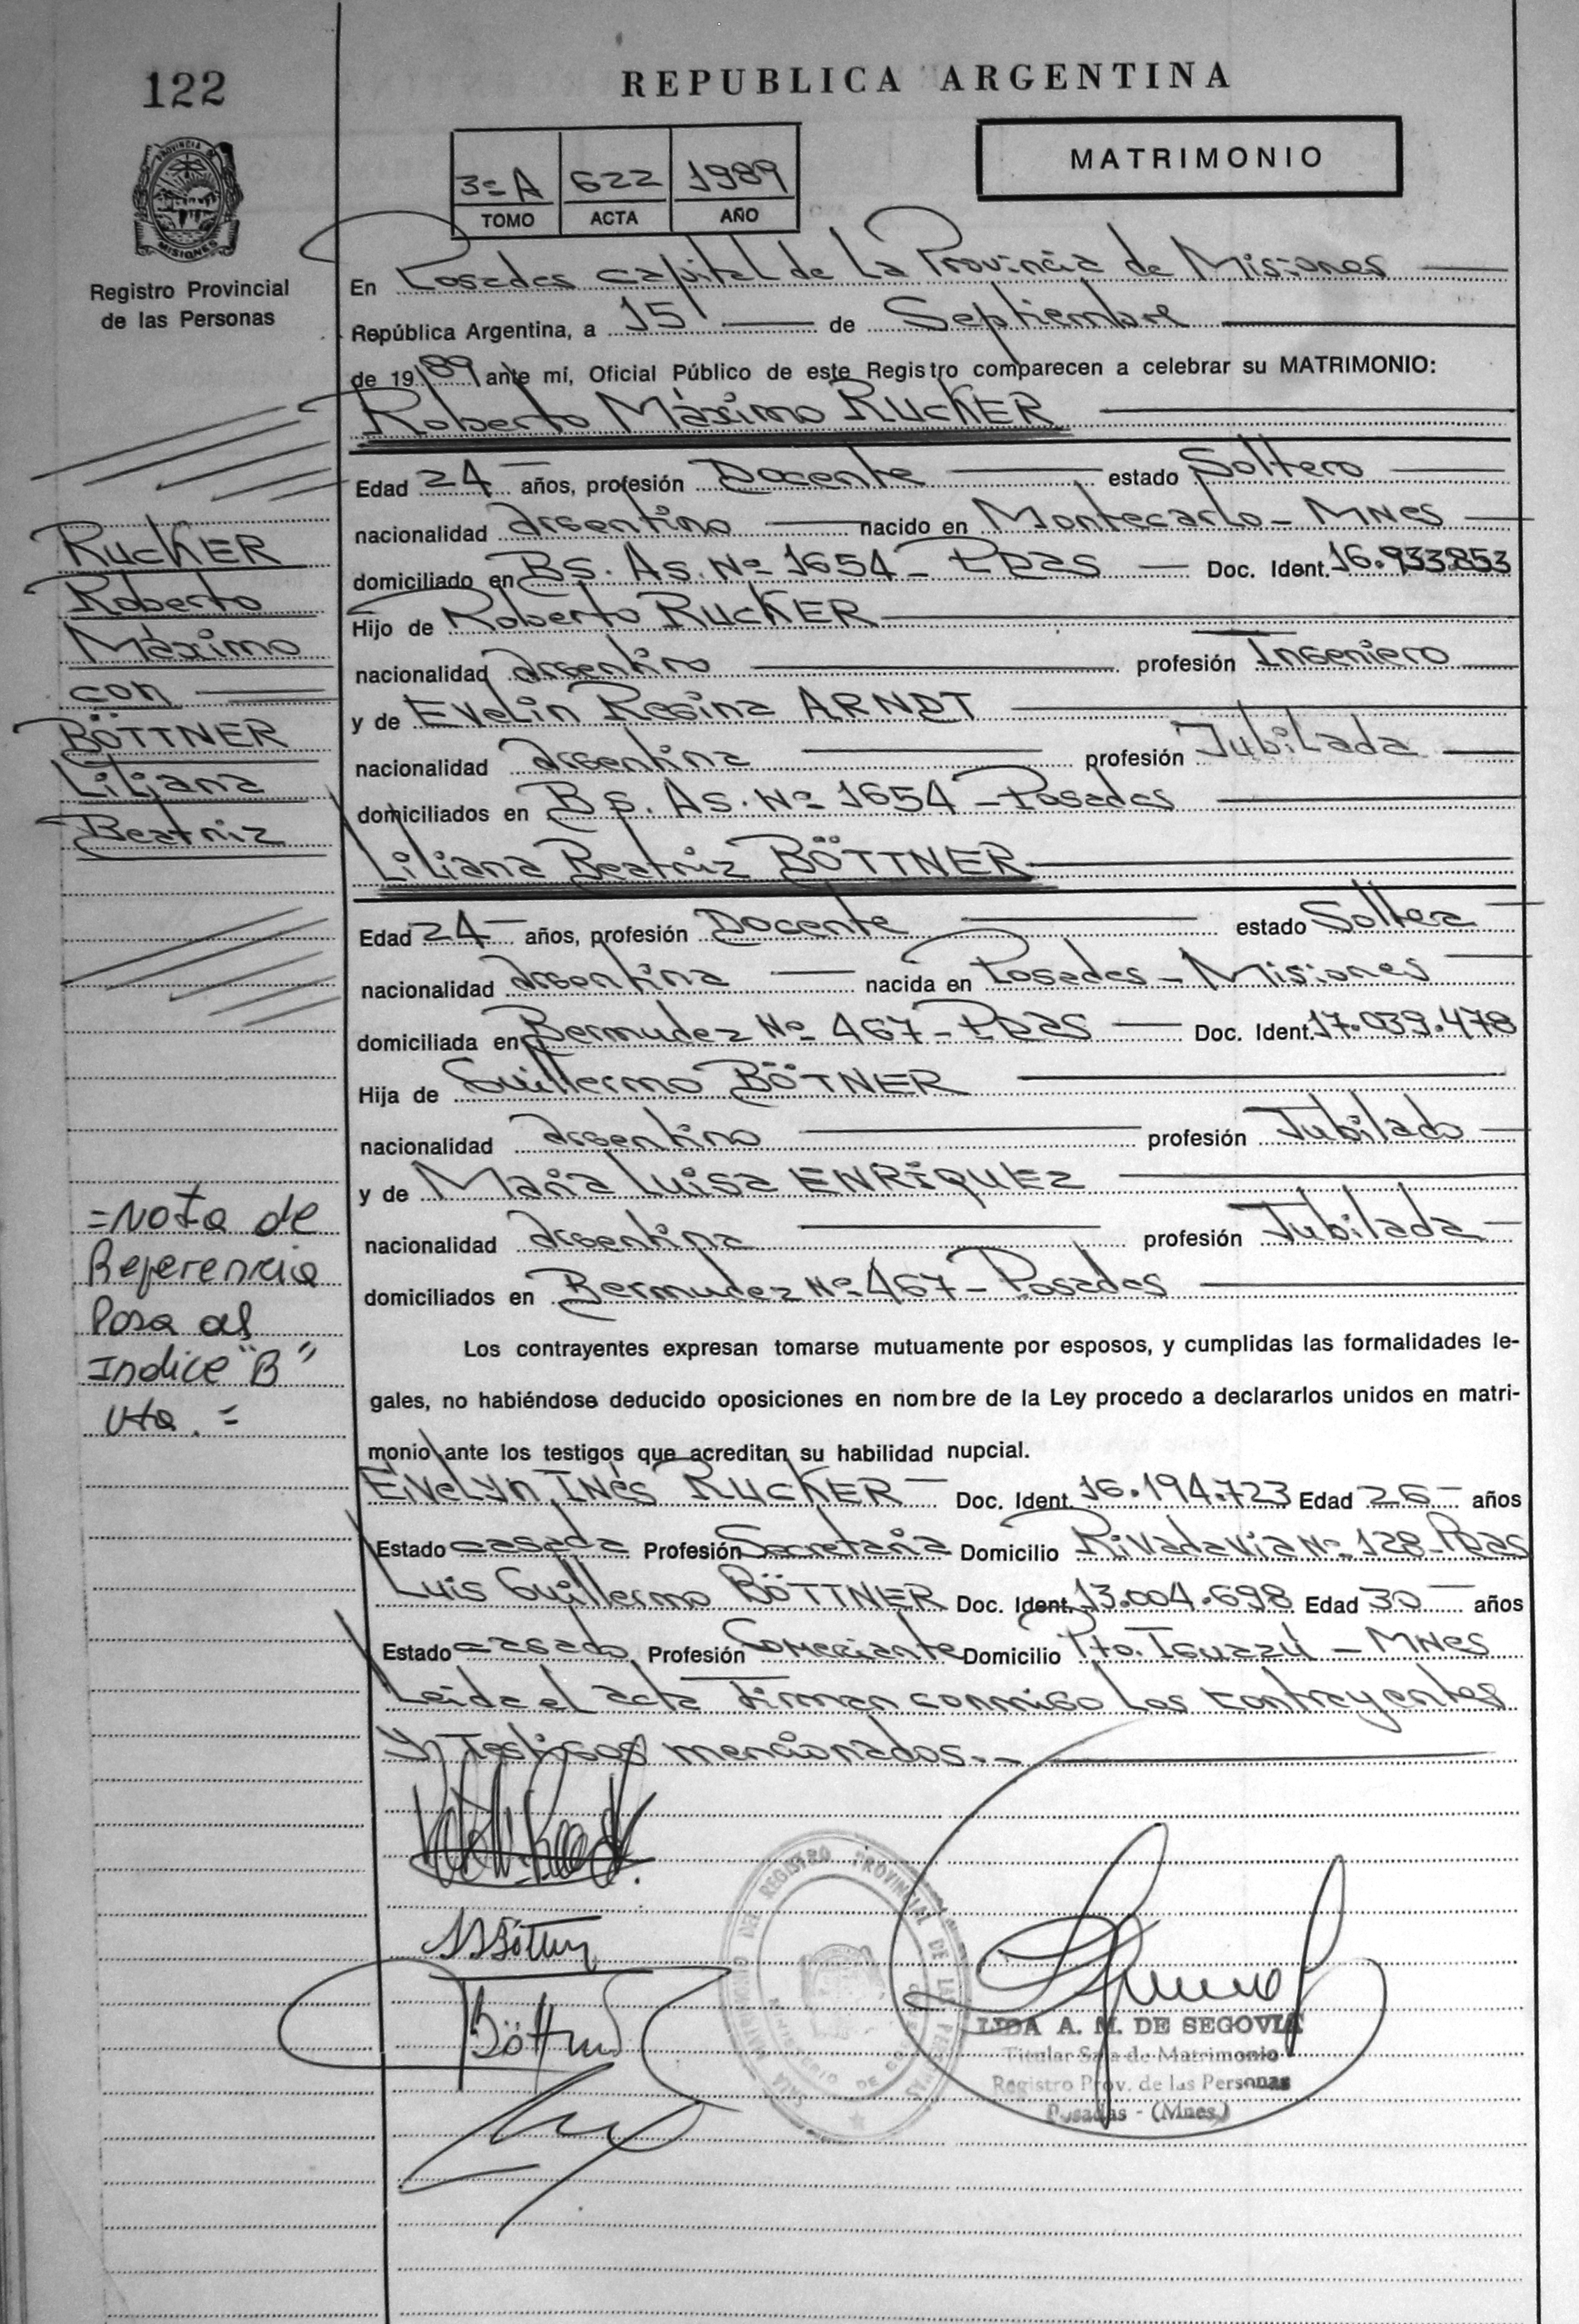 122
REPUBLICA ARGENTINA
PROVINCIA DE
MISIONES
Registro Provincial
de las Personas
3º A 622 1989
TOMO ACTA AÑO
MATRIMONIO
En Posadas capital de La Provincia de Misiones
República Argentina, a 15 de Septiembre
de 1989 ante mí, Oficial Público de este Registro comparecen a celebrar su MATRIMONIO:
Roberto Máximo RUCKER
Edad 24 años, profesión Docente estado Soltero
nacionalidad argentino nacido en Montecarlo - MNes
domiciliado en Bs. As. Nº 1654 - Pdas Doc. Ident. 16.933.853
Hijo de Roberto RUCKER
nacionalidad argentino profesión Ingeniero
y de Evelin Regina ARNDT
nacionalidad argentina profesión Jubilada
domiciliados en Bs. As. Nº 1654 - Posadas
Liliana Beatriz BÖTTNER
Edad 24 años, profesión Docente estado Soltera
nacionalidad argentina nacida en Posadas - Misiones
domiciliada en Bermudez Nº 467 - Pdas Doc. Ident. 17.039.478
Hija de Guillermo BÖTNER
nacionalidad argentino profesión Jubilado
y de Maria Luisa ENRIQUEz
nacionalidad argentina profesión Jubilada
domiciliados en Bermudez Nº 467 - Posadas
Los contrayentes expresan tomarse mutuamente por esposos, y cumplidas las formalidades le-
gales, no habiéndose deducido oposiciones en nombre de la Ley procedo a declararlos unidos en matri-
monio ante los testigos que acreditan su habilidad nupcial.
Evelyn Inés RUCKER Doc. Ident. 16.194.723 Edad 26 años
Estado casada Profesión Secretaria Domicilio Rivadavia Nº 128 - Pdas
Luis Guillermo BÖTTNER Doc. Ident. 13.004.698 Edad 30 años
Estado casado Profesión Comerciante Domicilio Pto. Iguazú - MNes
Leida el acta Firman conmigo los contrayentes
y Testigos mencionados.-
RUCKER
Roberto
Máximo
con
BÖTTNER
Liliana
Beatriz
=Nota de
Referencia
Pasa al
Indice "B"
Vta. =
SALA MATRIMONIO DEL REGISTRO PROVINCIAL DE LAS PERSONAS
MINISTERIO DE GOBIERNO
LIDA A. M. DE SEGOVIA
Titular Sala de Matrimonio
Registro Prov. de las Personas
Posadas - (Mnes.)